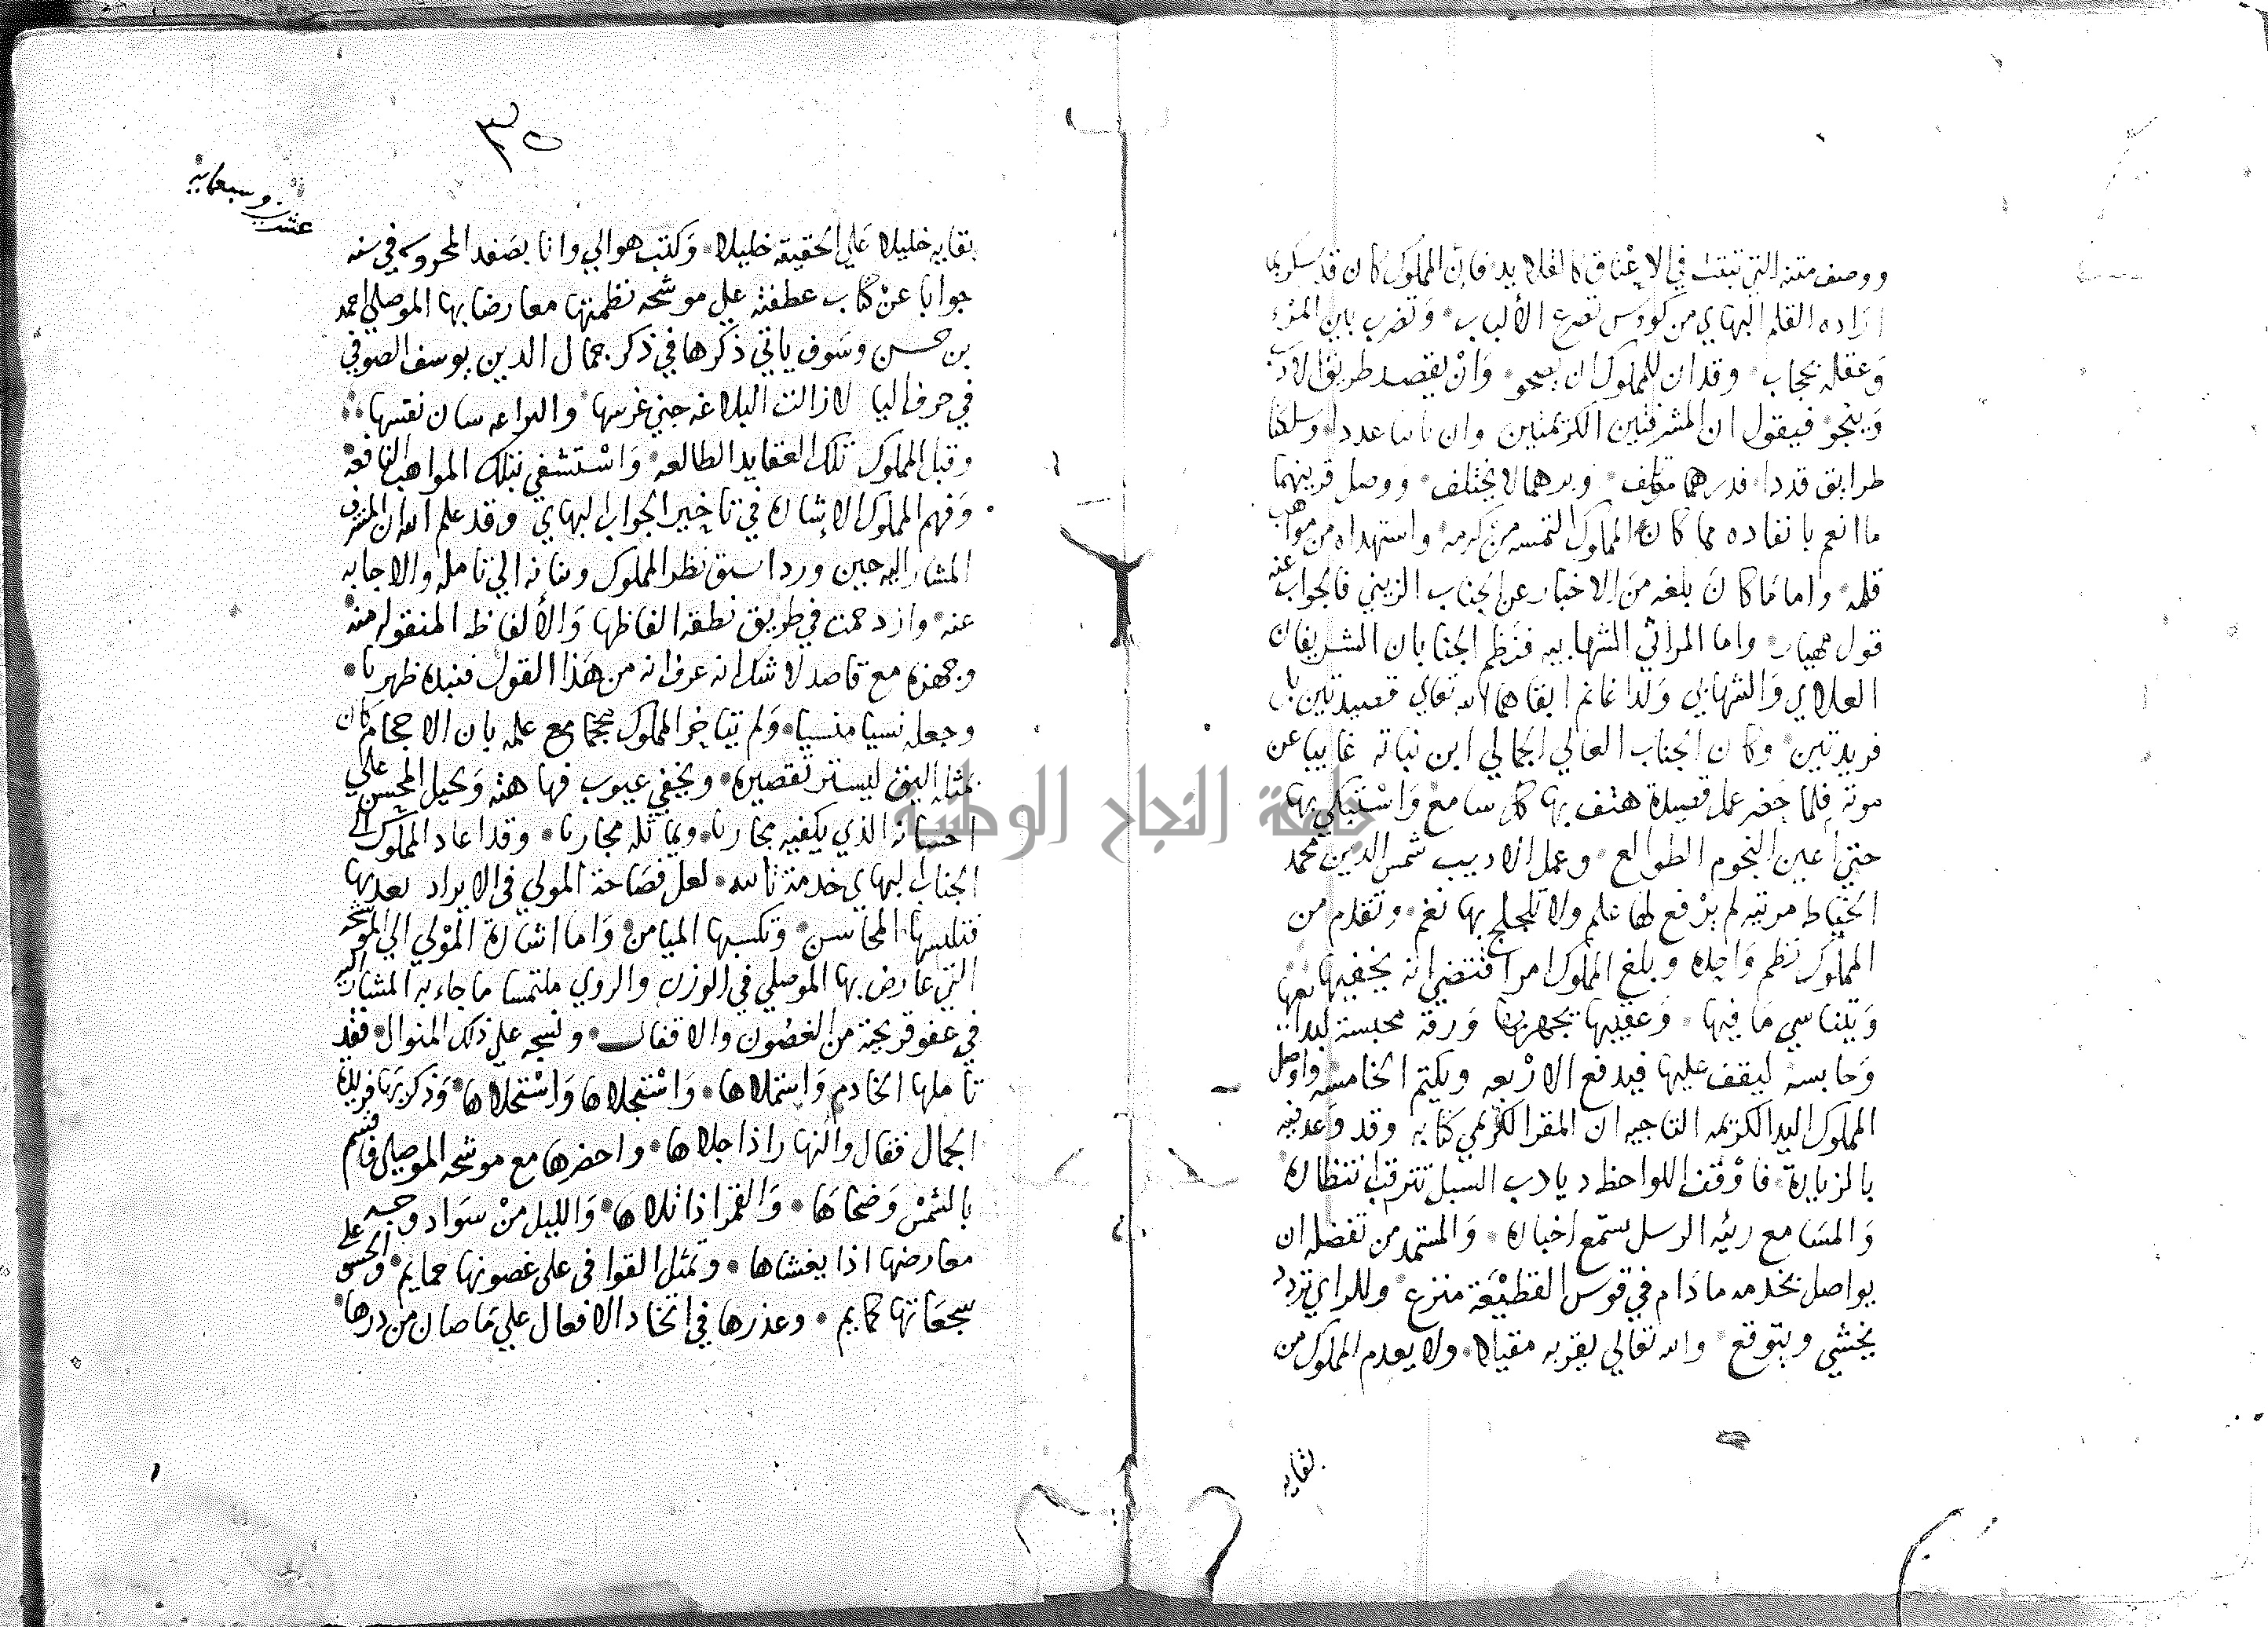 ووصف مننه التي تبقت في الاعناق كالقلايد فان المملوك كان قد
اراده القله البهاي من كووس تصرع الألباب وتضرب بين المرء
وعقله بحجاب وقد ان للمملوك ان يصحو وان يقصد طريق الادب
وينحو فيقول ان المشرفتين الكريمتين وان عددا وسلكتا
طرايق قددا فدرهما مؤتلف وبرهما لا يختلف ووصل قرينهما
ما انعم بانفاده مما كان المملوك التمسه من كرمه واستهداه من مواهب
قلمه واما ما كان بلغه من الاخبار عن الجناب الزيني فالجواب عنه
قول مهيار واما المراثي الشهابيه فنظم الجنابان الشريفان
العلاي والشهابي ولدا غانم ابقاهما الله تعالي قصيدتين بل
فريدتين وكان الجناب العالي الجمالي ابن نباته غايبا عن
موته فلما حضر عمل قصيدة هتف بها كل سامع واستبكي بها
حتي اعين النجوم الطوالع وعمل الاديب شمس الدين محمد
الخياط مرثيه لم يرفع لها علم ولا تلجلج بها نغم وتقدم من
المملوك نظم واحده وبلغ المملوك امر اقتضي انه يخفيها
ويتناسي ما فيها وعقيبها تجهز بها ورقة محبسة
وحابسه ليقف عليها فيدفع الاربعه ويكتم الخامسه واوصل
المملوك اليد الكريمه التاجيه ان المقر الكريمي كتابه وقد وعد فيه
بالزياره فاوقف اللواحظ ديادب السبل تترقب انتظاره
والمسامع ربيه الرسل تستمع اخباره والمستمد من تفضله ان
يواصل بخدمه مادام في قوس القطيعة منزع وللراي تردد
يخشي ويتوقع والله تعالي بقربه مقيلا ولا يعدم المملوك من
بقايه
٣٥
عشرين وسبعمايه
بقايه خليلا علي الحقيقه خليلا وكتب هو الي وانا بصفد المحروسه في سنه
جوابا عن كتاب عطفته علي موشحه نظمتها معارضا بها الموصلي احمد
بن حسن وسوف ياتي ذكرها في ذكر جمال الدين يوسف الصوفي
في حرف اليا لا زالت البلاغه جني غرسها والبراعه نقسها
وقبل المملوك تلك العقايد الطالعه واستشفي بتلك المواهب النافعه
وفهم المملوك الاشاره في تاخير الجواب البهاي وقد علم الله ان المشرف
المشار اليه حين ورد استبق نظر المملوك وبنانه الي تامله والاجابه
عنه وازدحمت في طريق نطقه الفاظها والألفاظ المنقوله منه
وجهزه مع قاصد لا شك انه عرف انه من هذا القول فنبذه ظهريا
وجعله نسيا منسيا ولم يتاخر المملوك محجما مع علمه بان الاحجام كان
بمثله اليق ليستر تقصيره ويخفي عيوب فهاهته ويحيل المحسن علي
احسانه الذي يكفيه مجاريا ويماثله مجاريا وقد اعاد المملوك الي
الجناب البهاي خدمة ثانيه لعل فصاحة المولي في الايراد بعدبها
فتلبسها المحاسن وتكسبها الميامن واما اشارة المولي الي الموشحه
التي عارض بها الموصلي في الوزن والروي ملتمسا ما جاء به المشار اليه
في عفو قريحته من الغصون والاقفال ونسجه علي ذلك المنوال فقد
تاملها الخادم واستملاها واستجلاها واستحلاها وذكر بها فريدة
الجمال فقال والنهار اذا جلاها واحضرها مع موشحه الموصلي فاقسم
بالشمس وضحاها والقمر اذا تلاها والليل من سواد وجه
معارضها اذا يغشاها وتمثل القوافي علي غصونها حمايم والحسن علي
سجعاتها كمايم وعذرها في اتحاد الافعال علي ما صان من درها
جامعة النجاح الوطنية